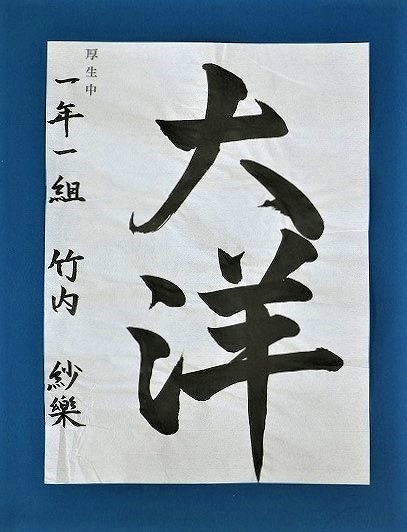 大洋
厚生中
一年一組 竹内 紗樂